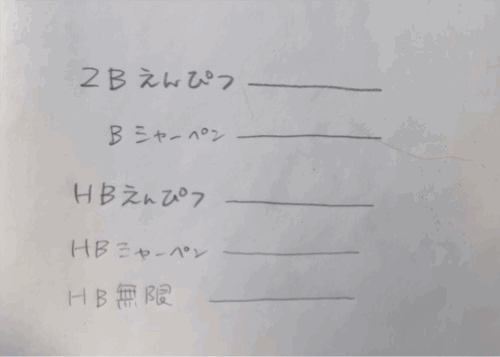 2B えんぴつ
B シャーペン
HB えんぴつ
HB シャーペン
HB 無限